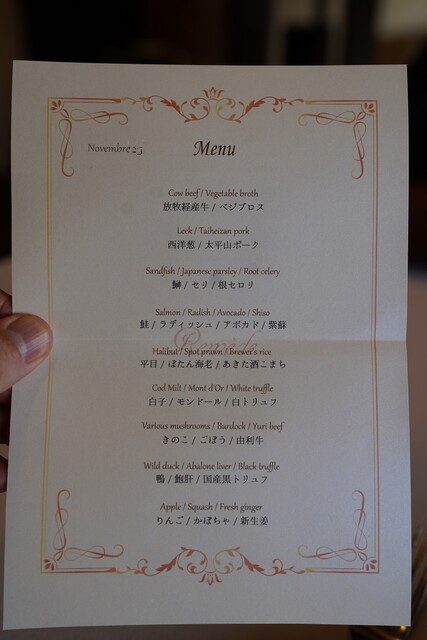 Novembre23
Menu
Cow beef / Vegetable broth
放牧経産牛 / ベジブロス
Leek / Taiheizan pork
西洋葱 / 太平山ポーク
Sandfish / Japanese parsley / Root celery
鰰 / セリ / 根セロリ
Salmon / Radish / Avocado / Shiso
鮭 / ラディッシュ / アボカド / 紫蘇
Halibut / Spot prawn / Brewer's rice
平目 / ぼたん海老 / あきた酒こまち
Cod Milt / Mont d'Or / White truffle
白子 / モンドール / 白トリュフ
Various mushrooms / Burdock / Yuri beef
きのこ / ごぼう / 由利牛
Wild duck / Abalone liver / Black truffle
鴨 / 鮑肝 / 国産黒トリュフ
Apple / Squash / Fresh ginger
りんご / かぼちゃ / 新生姜